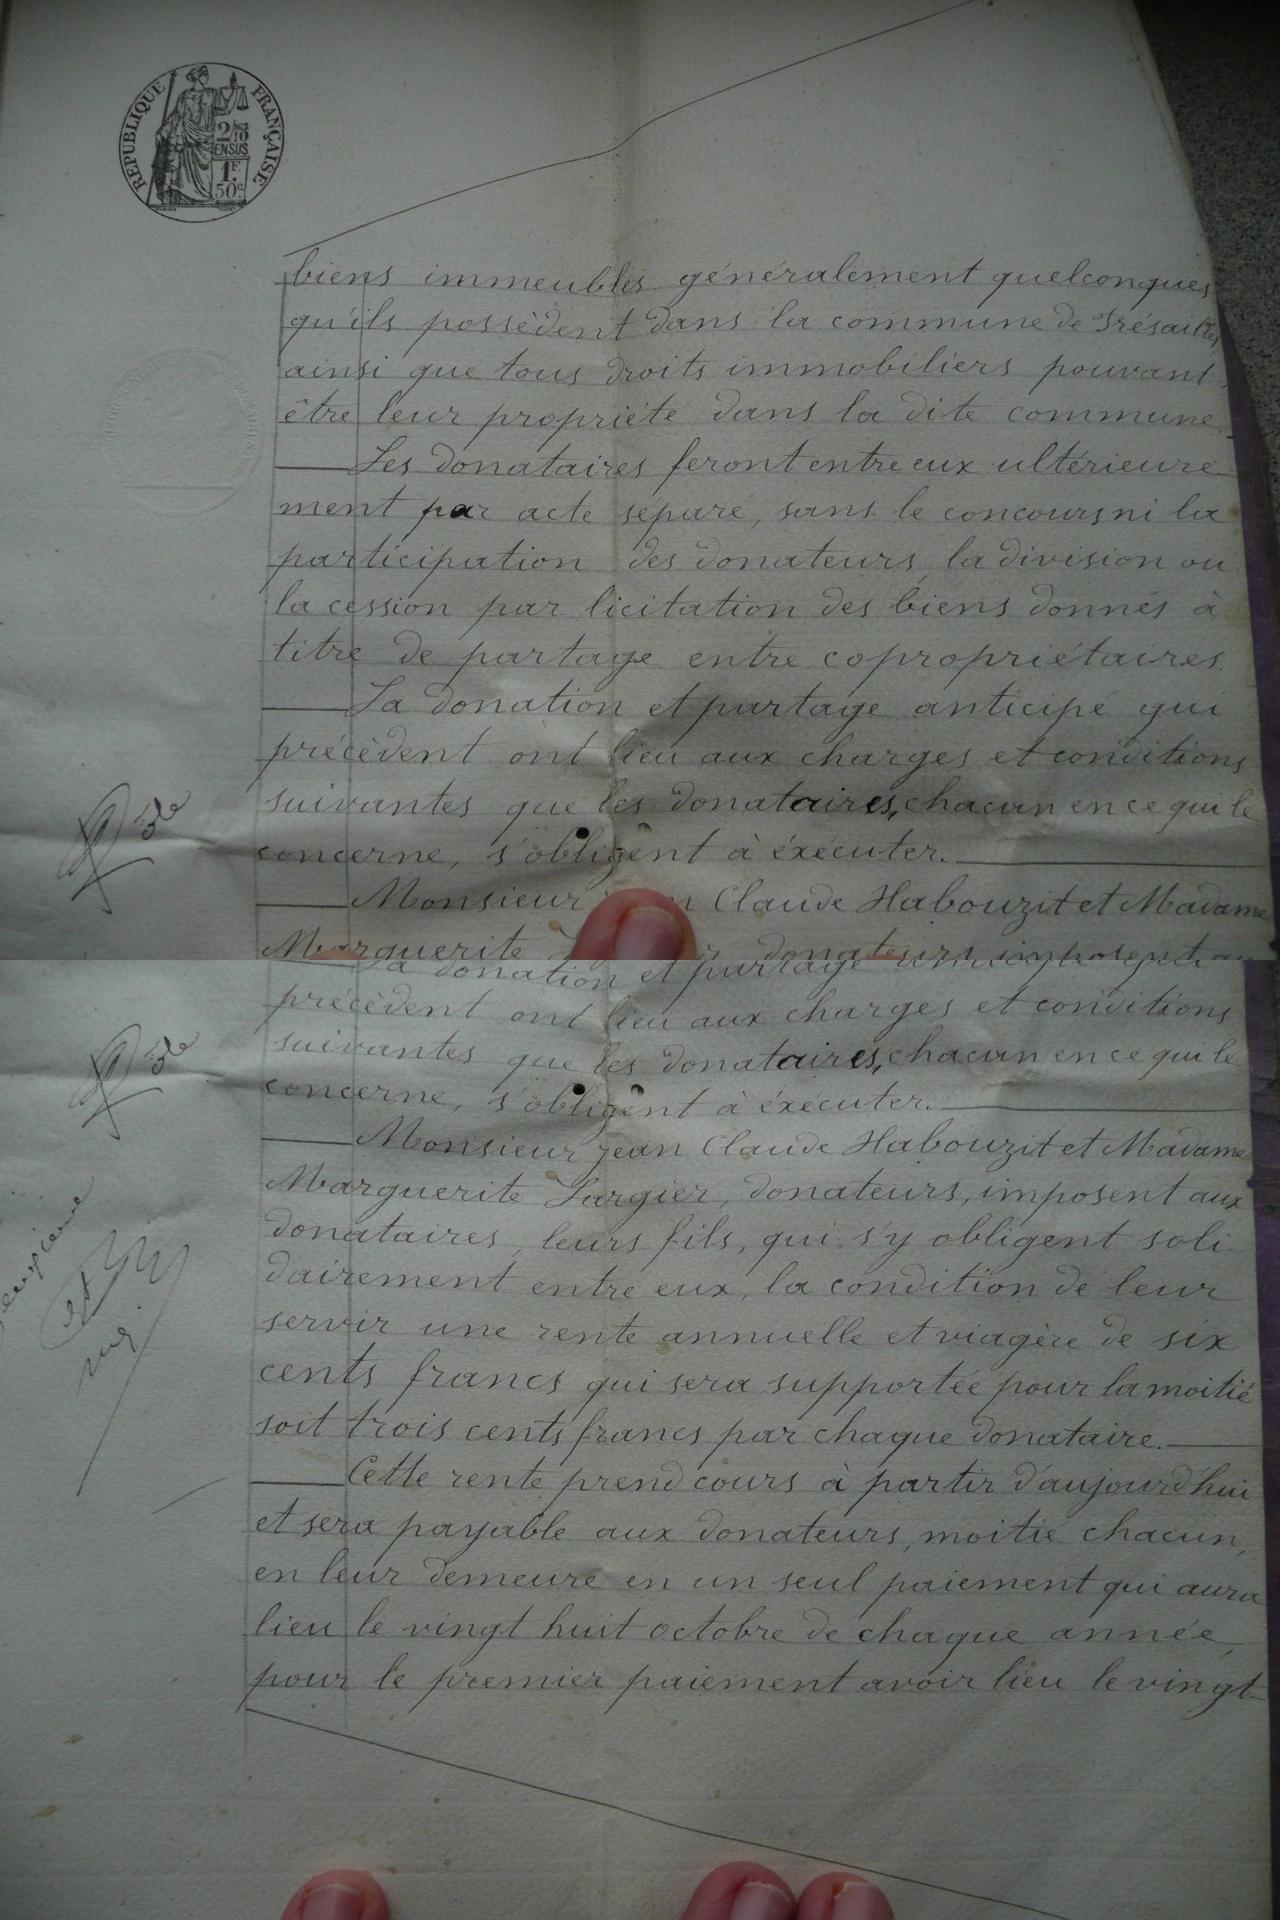 RÉPUBLIQUE FRANÇAISE
2/10
EN SUS
1F
50c
biens immeubles généralement quelconques
qu'ils possèdent dans la commune de Frésailles,
ainsi que tous droits immobiliers pouvant
être leur propriété dans la dite commune.
Les donataires feront entre eux ultérieure
ment par acte séparé, sans le concours ni la
participation des donateurs, la division ou
la cession par licitation des biens donnés à
titre de partage entre copropriétaires.
La donation et partage anticipé qui
précèdent ont lieu aux charges et conditions
suivantes que les donataires, chacun en ce qui le
concerne, s'obligent à éxécuter.
Monsieur Claude Habouzit et Madame
Marguerite donateurs, imposent aux
La donation et partage
précèdent ont lieu aux charges et conditions
suivantes que les donataires, chacun en ce qui le
concerne, s'obligent à éxécuter.
Monsieur Jean Claude Habouzit et Madame
Marguerite Largier, donateurs, imposent aux
donataires, leurs fils, qui s'y obligent soli
dairement entre eux, la condition de leur
servir une rente annuelle et viagère de six
cents francs qui sera supportée pour la moitié
soit trois cents francs par chaque donataire.
Cette rente prend cours à partir d'aujourd'hui
et sera payable aux donateurs, moitié chacun,
en leur demeure en un seul paiement qui aura
lieu le vingt huit octobre de chaque année,
pour le premier paiement avoir lieu le vingt